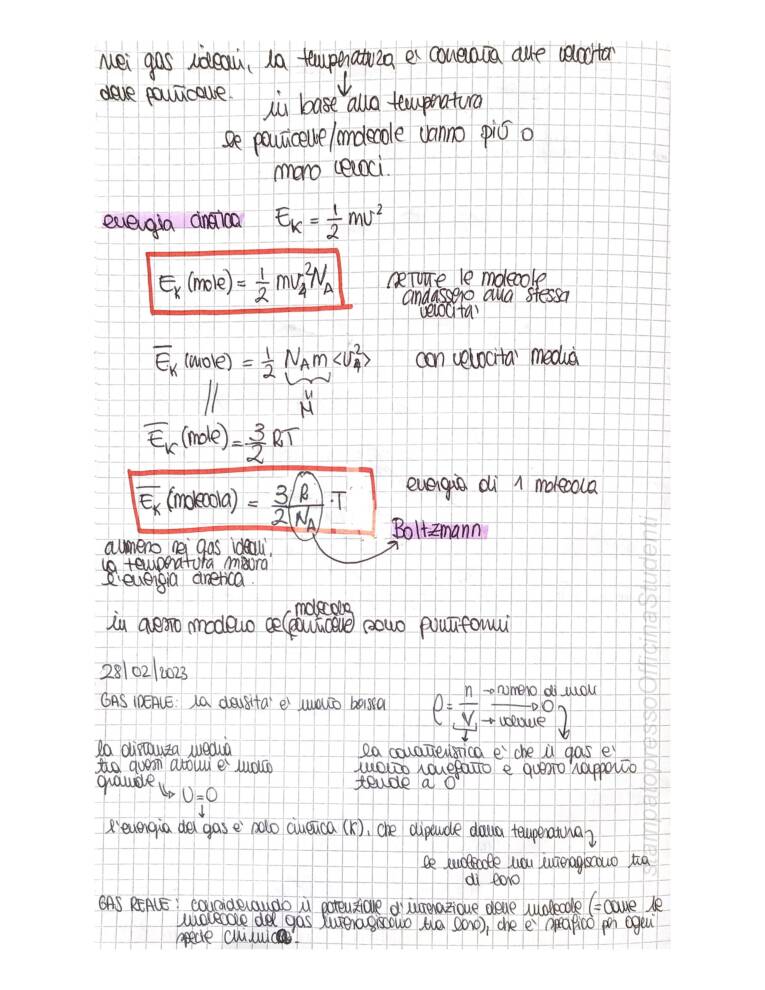 nei gas ideali, la temperatura è correlata alle velocità
delle particelle.
in base alla temperatura
le particelle/molecole vanno più o
meno veloci.
energia cinetica E_K = 1/2 mv²
E_K (mole) = 1/2 mv₄² N_A
se tutte le molecole
andassero alla stessa
velocità
E̅_K (mole) = 1/2 N_A m <v₄²> con velocità media
M
E̅_K (mole) = 3/2 RT
E̅_K (molecola) = 3/2 R/N_A · T
energia di 1 molecola
Boltzmann
almeno nei gas ideali,
la temperatura misura
l'energia cinetica.
molecole
in questo modello le (particelle) sono puntiformi
28/02/2023
GAS IDEALE: la densità è molto bassa
ρ = n/V → 0
→ numero di moli
→ volume
la distanza media
tra questi atomi è molto
grande
↳ U=0
la caratteristica è che il gas è
molto rarefatto e questo rapporto
tende a 0
l'energia del gas è solo cinetica (K), che dipende dalla temperatura
le molecole non interagiscono tra
di loro
GAS REALE: considerando il potenziale d'interazione delle molecole (=come le
molecole del gas interagiscono tra loro), che è specifico per ogni
specie chimica.
stampatopressoOfficinaStudenti